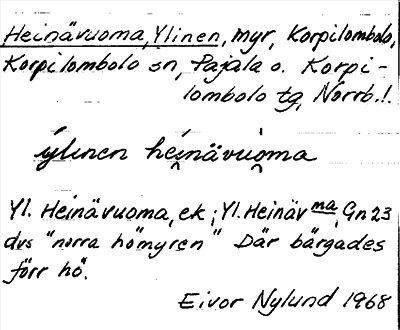 Heinävuoma, Ylinen, myr, Korpilombolo,
Korpilombolo sn, Pajala o. Korpi-
lombolo tg, Norrb.l.
ylinen heinävuoma
Yl. Heinävuoma, ek; Yl. Heinäv ma, Gn 23
dvs "norra hömyren" Där bärgades
förr hö.
Eivor Nylund 1968